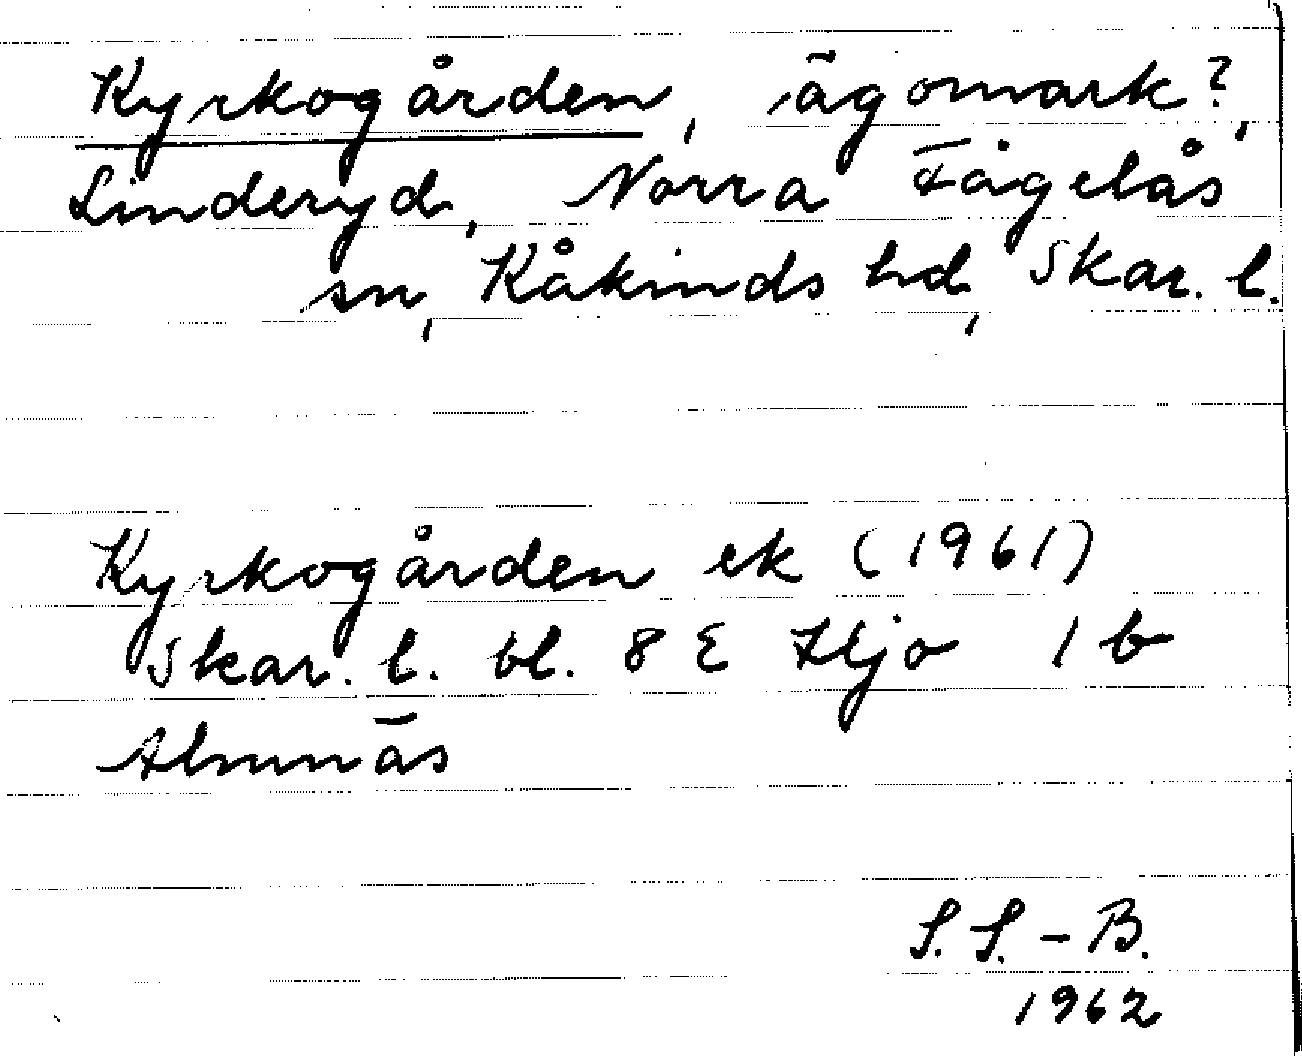 Kyrkogården, ägomark?,
Linderyd, Norra Fågelås
sn, Kåkinds hd, Skar. l.
Kyrkogården ek (1961)
Skar. l. bl. 8 E Hjo 1 b
Almnäs
S. S. - B.
1962